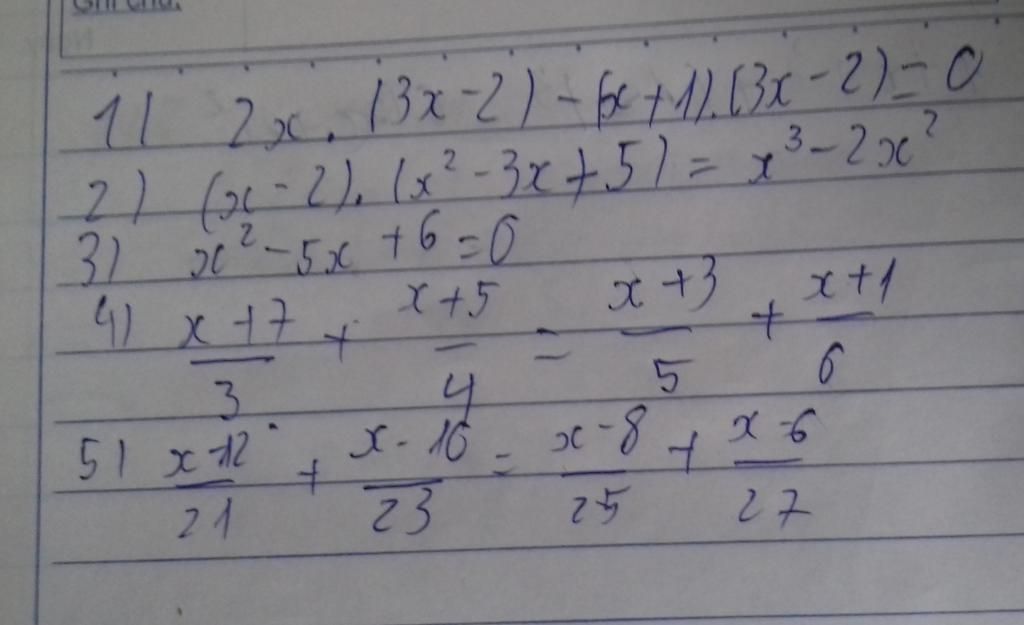 1) 2x.(3x-2)-(x+1).(3x-2)=0
2) (x-2).(x²-3x+5)=x³-2x²
3) x²-5x+6=0
4) (x+7)/3 + (x+5)/4 = (x+3)/5 + (x+1)/6
5) (x-12)/21 + (x-10)/23 = (x-8)/25 + (x-6)/27